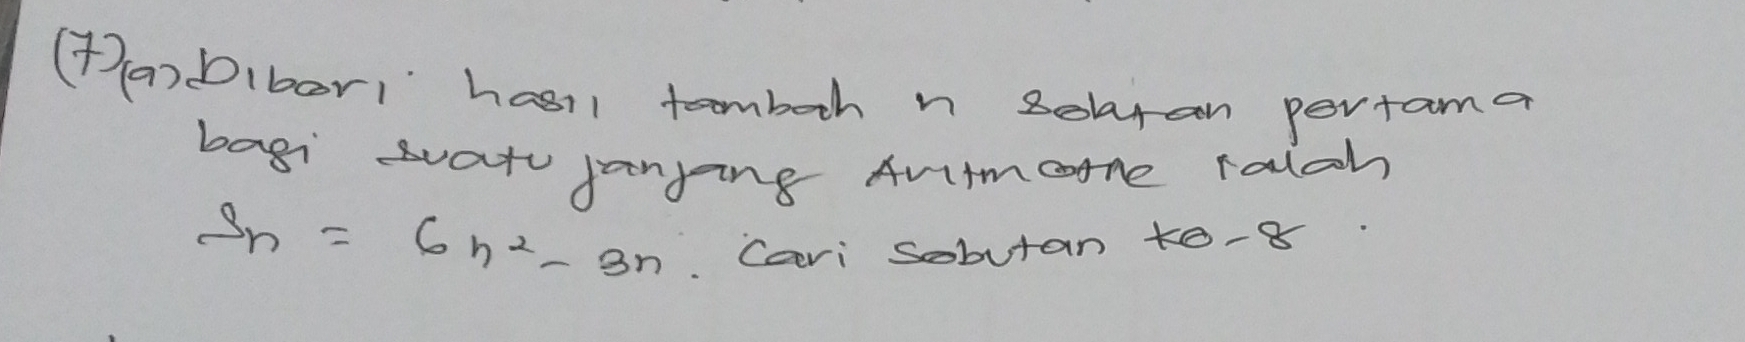 (7)(a) Diberi hasil tambah n sebutan pertama
bagi suatu janjang Aritmetik ialah
Sn = 6n² - 3n. Cari sebutan ke-8.